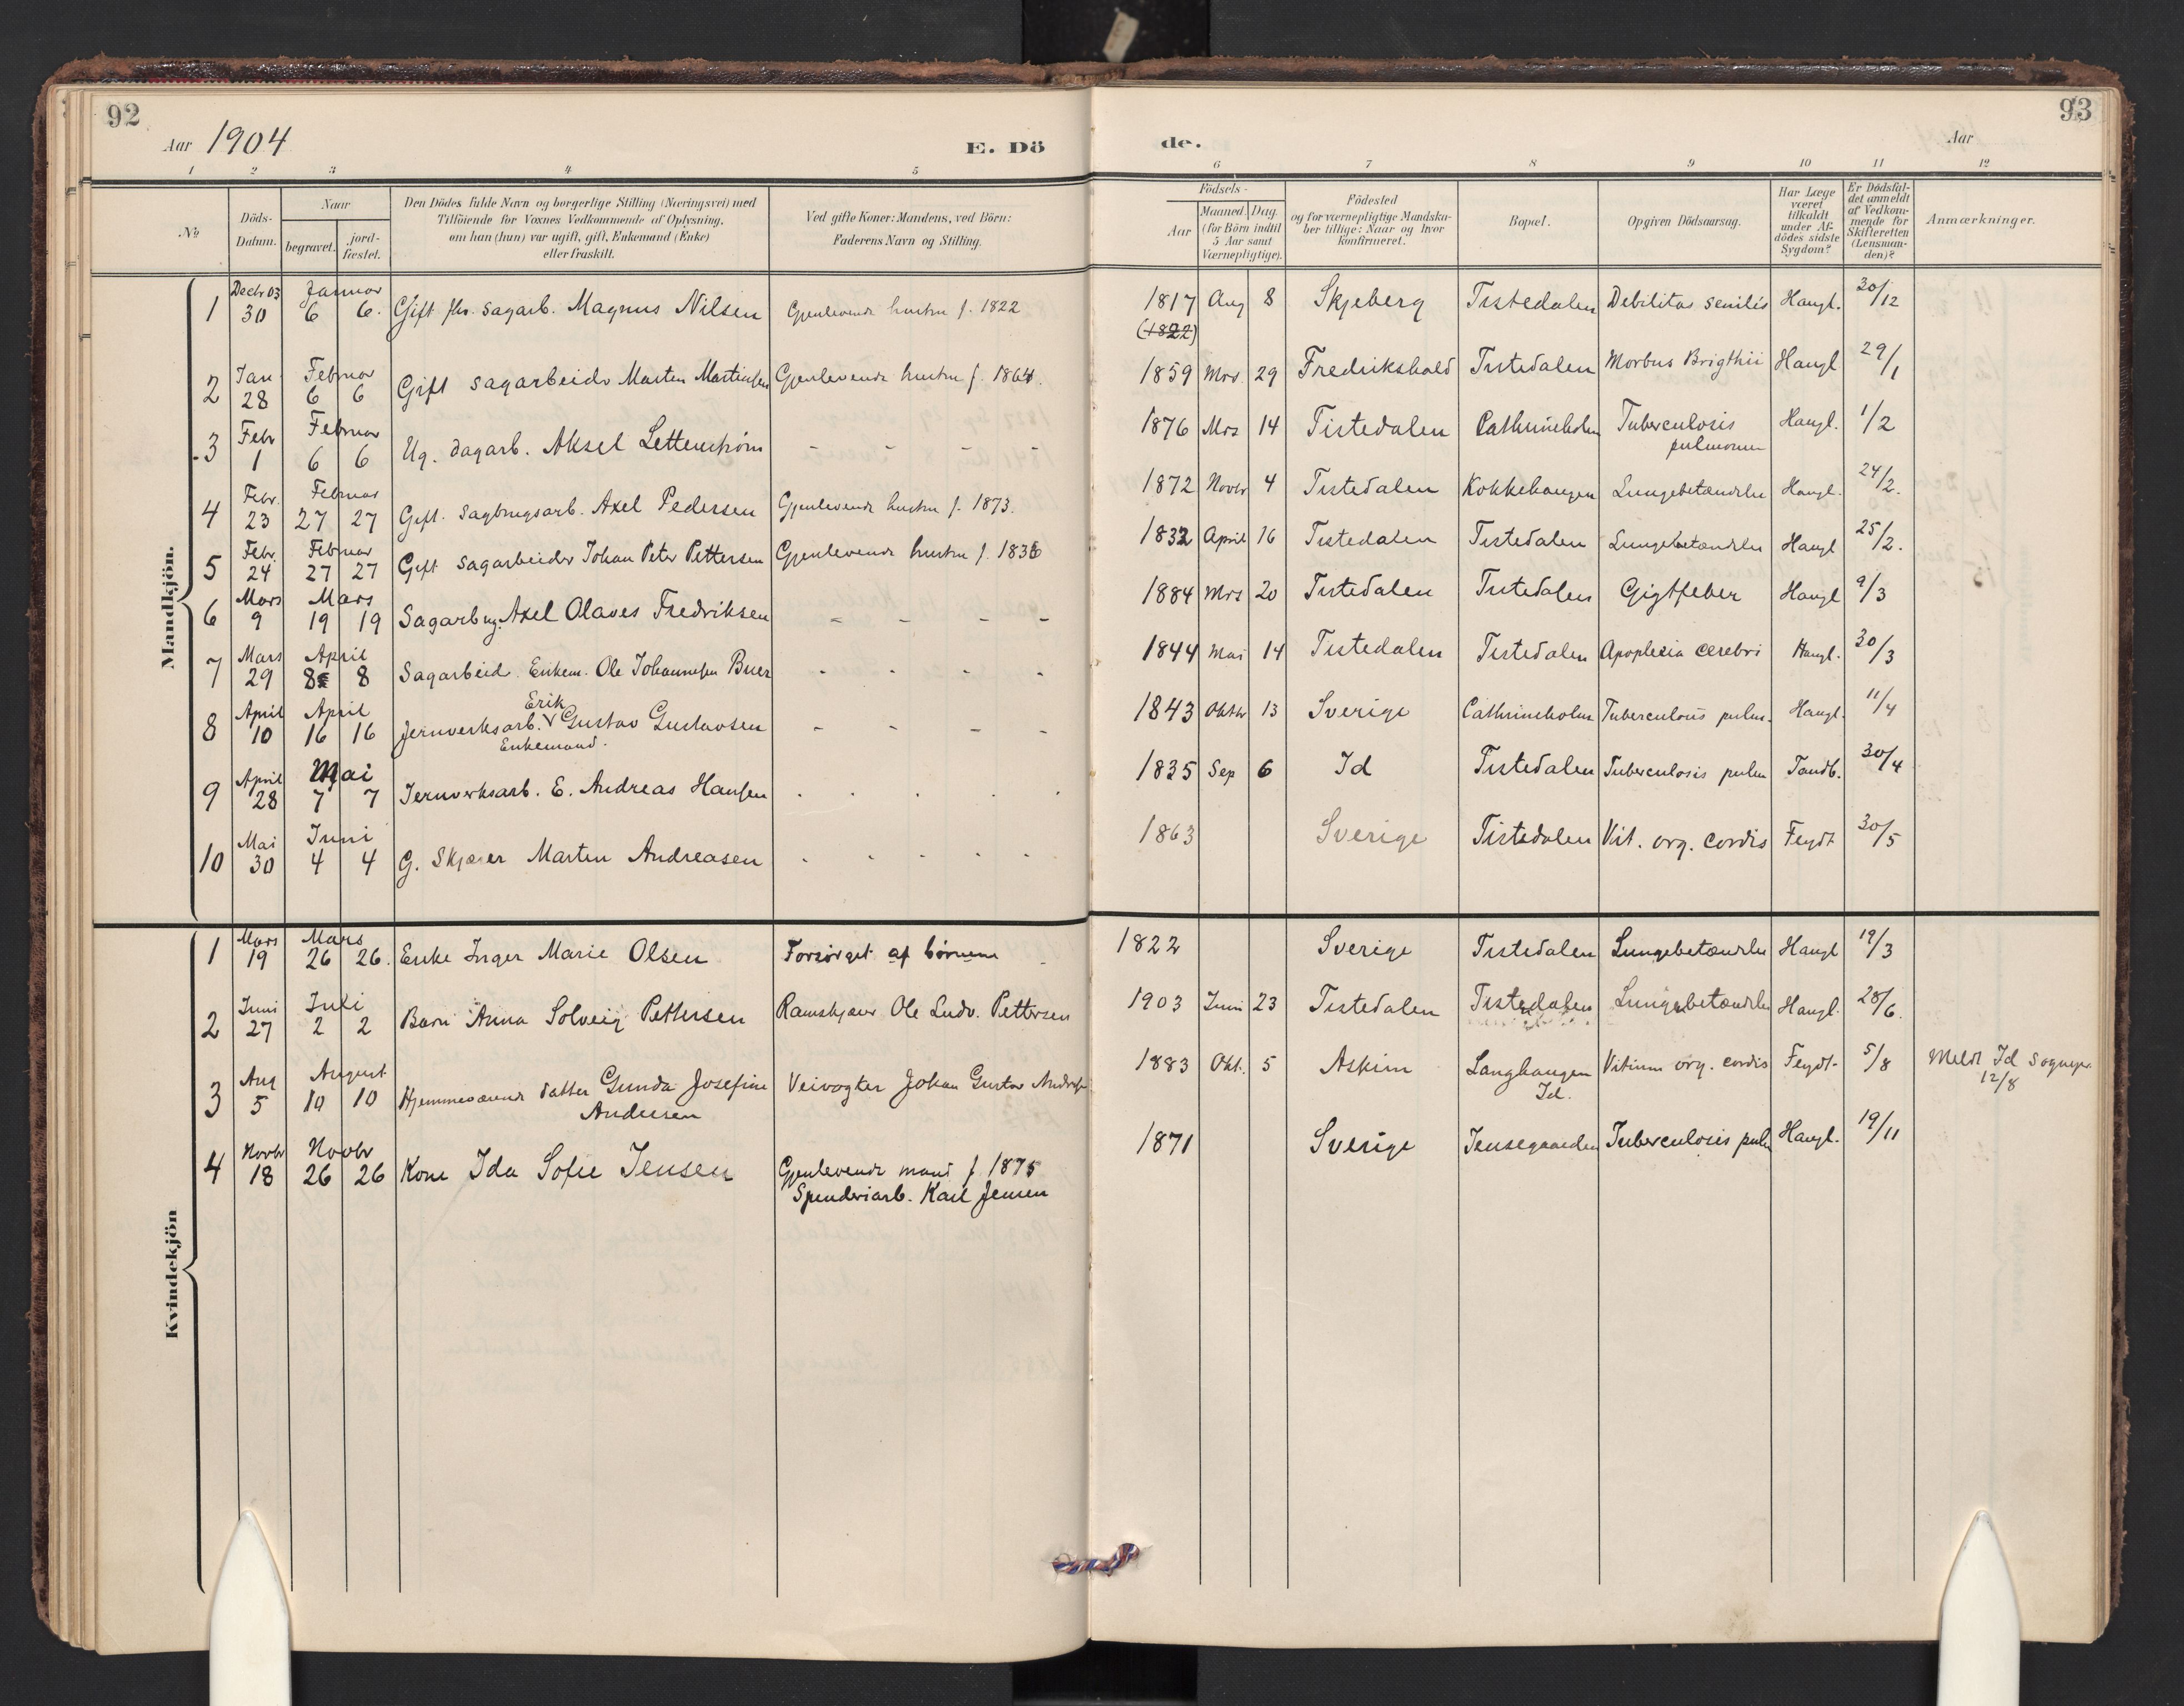 92
93
Aar 1904
E. Dö
de.
Aar
1 2 3 4 5 6 7 8 9 10 11 12
No
Döds-
Datum.
Naar
begravet.
jord-
fæstet.
Den Dödes fulde Navn og borgerlige Stilling (Næringsvei) med
Tilföiende for Voxnes Vedkommende af Oplysning,
om han (hun) var ugift, gift, Enkemand (Enke)
eller fraskilt.
Ved gifte Koner: Mandens, ved Börn:
Faderens Navn og Stilling.
Födsels-
Aar
Maaned. Dag.
(for Börn indtil
5 Aar samt
Værnepligtige).
Födested
og for værnepligtige Mandska-
ber tillige: Naar og hvor
konfirmeret.
Bopæl.
Opgiven Dödsaarsag.
Har Læge
været
tilkaldt
under Af-
dödes sidste
Sygdom?
Er Dödsfal-
det anmeldt
af Vedkom-
mende for
Skifteretten
(Lensman-
den)?
Anmærkninger.
Mandkjön.
Decbr 03 Januar
1 30 6 6. Gift fhv. Sagarb. Magnus Nilsen Gjenlevende hustru f. 1822 1817 Aug 8 Skjeberg Tistedalen Debilitas senilis Haugl. 30/12
(1822)
Jan Februar
2 28 6 6 Gift sagarbeider Marten Martinsen Gjenlevende hustru f. 1864. 1859 29 Fredrikshald Tistedalen Morbus Brigthii Haugl 29/1
Febr Februar
3 1 6 6 Ug. dagarb. Aksel Lettenstrøm - - - - 1876 Mrs 14 Tistedalen Cathrineholm Tuberculosis Haugl. 1/2
Febr. Februar
4 23 27 27 Gift. Sagbrugsarb. Axel Pedersen Gjenlevende hustru f. 1873. 1872 Novbr 4 Tistedalen Kokkehaugen Lungebetændelse Haugl. 24/2.
Febr. Februar
5 24 27 27 Gift Sagarbeider Johan Peter Pettersen Gjenlevende hustru f. 1836 1832 April 16 Tistedalen Tistedalen Lungebetændelse Haugl 25/2.
Mars Mars
6 9 19 19 Sagarb ug. Axel Olaves Fredriksen - - - - 1884 Mrs 20 Tistedalen Tistedalen Gigtfeber Haugl 9/3
Mars April
7 29 8 8 Sagarbeid. Enkem. Ole Johannesen Buer - - - - 1844 Mai 14 Tistedalen Tistedalen Apoplexia cerebri Haugl. 30/3
April April Erik
8 10 16 16 Jernverksarb. Gustav Gustavsen - - - - 1843 Oktbr 13 Sverige Cathrineholm Tuberculosis pulm. Haugl. 11/4
Enkemand.
April Mai
9 28 7 7 Jernverksarb. E. Andreas Hansen . . . . . 1835 Sep 6 Id Tistedalen Tuberculosis pulm Tandb. 30/4
Mai Juni
10 30 4 4 G. Skjærer Martin Andreasen . . . . . 1863 Sverige Tistedalen Vit. org. cordis Feydt 30/5
Kvindekjön
Mars Mars
1 19 26 26. Enke Inger Marie Olsen Forsørget af børnene 1822 Sverige Tistedalen Lungebetændelse Haugl 19/3
Juni Juli
2 27 2 2 Barn Anna Solveig Pettersen Ramskjærer Ole Ludv. Pettersen 1903 Juni 23 Tistedalen Tistedalen Lungebetændelse Haugl. 28/6.
Aug August
3 5 10 10 Hjemmeværende datter Gunda Josefine Veivogter Johan Gustav 1883 Okt. 5 Askim Langhaugen Vitium org. cordis Feydt- 5/8 Meldt Id Sognepr.
Andersen Id. 12/8
Novbr Novbr
4 18 26 26 Kone Ida Sofie Jensen Gjenlevende mand f. 1875 1871 Sverige Jensegaarden Tuberculosis pulm Haugl. 19/11
Spinderiarb. Karl Jensen